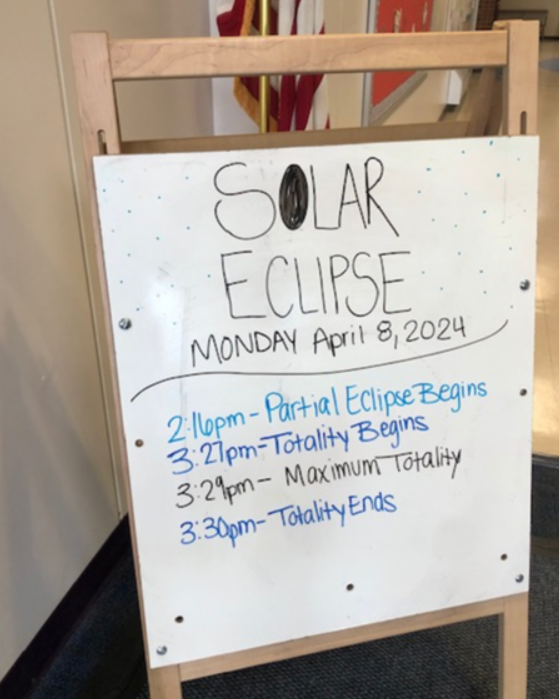 SOLAR
ECLIPSE
MONDAY April 8, 2024
2:16pm - Partial Eclipse Begins
3:27pm - Totality Begins
3:29pm - Maximum Totality
3:30pm - Totality Ends